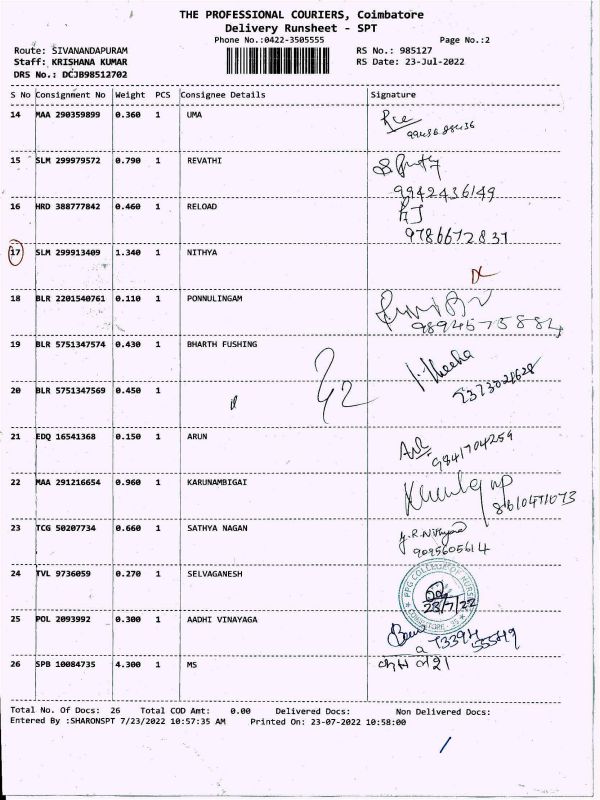 THE PROFESSIONAL COURIERS, Coimbatore
Delivery Runsheet - SPT
Phone No.:0422-3505555 Page No.:2
Route: SIVANANDAPURAM RS No.: 985127
Staff: KRISHANA KUMAR RS Date: 23-Jul-2022
DRS No.: DCJB98512702
S No Consignment No Weight PCS Consignee Details Signature
14 MAA 290359899 0.360 1 UMA
15 SLM 299979572 0.790 1 REVATHI
9942436149
16 HRD 388777842 0.460 1 RELOAD
9786672837
17 SLM 299913409 1.340 1 NITHYA
18 BLR 2201540761 0.110 1 PONNULINGAM
9894575884
19 BLR 5751347574 0.430 1 BHARTH FUSHING
20 BLR 5751347569 0.450 1
21 EDQ 16541368 0.150 1 ARUN
9841704259
22 MAA 291216654 0.960 1 KARUNAMBIGAI
23 TCG 50207734 0.660 1 SATHYA NAGAN
9095605614
24 TVL 9736059 0.270 1 SELVAGANESH
PPG COLLEGE OF NURSING
23/7/22
COIMBATORE - 35
25 POL 2093992 0.300 1 AADHI VINAYAGA
26 SPB 10084735 4.300 1 MS
Total No. Of Docs: 26 Total COD Amt: 0.00 Delivered Docs: Non Delivered Docs:
Entered By :SHARONSPT 7/23/2022 10:57:35 AM Printed On: 23-07-2022 10:58:00